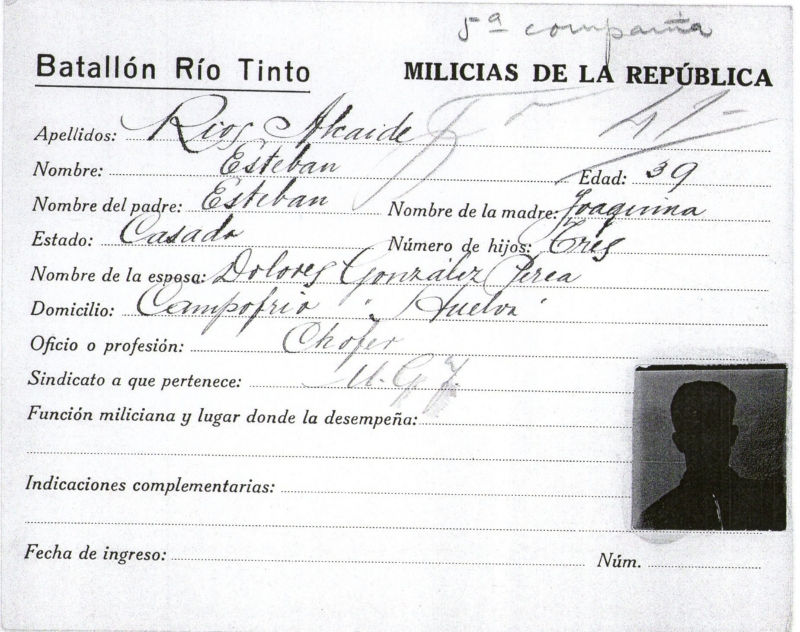 5ª compañia
Batallón Río Tinto MILICIAS DE LA REPÚBLICA
Apellidos: Rios Alcaide
Nombre: Esteban Edad: 39
Nombre del padre: Esteban Nombre de la madre: Joaquina
Estado: Casado Número de hijos: Tres
Nombre de la esposa: Dolores González Perea
Domicilio: Campofrio "Huelva"
Oficio o profesión: Chofer
Sindicato a que pertenece: U.G.T.
Función miliciana y lugar donde la desempeña:
Indicaciones complementarias:
Fecha de ingreso: Núm.